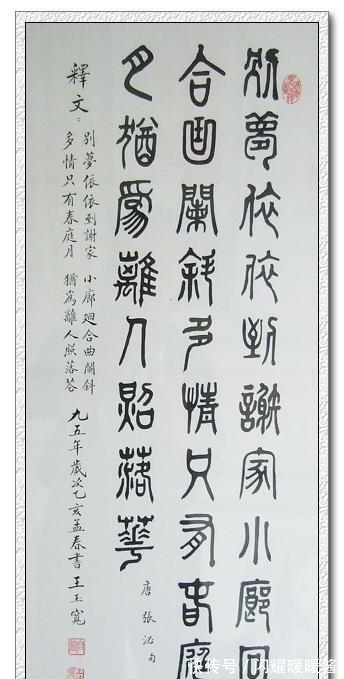 別夢依依到謝家小廊回
合曲闌斜多情只有春庭
月猶爲離人照落華
唐張泌句
釋文：
別夢依依到謝家 小廊廻合曲闌斜
多情只有春庭月 猶爲離人照落花
九五年歲次乙亥孟春書王玉寬
快传号/闪耀暖暖酱